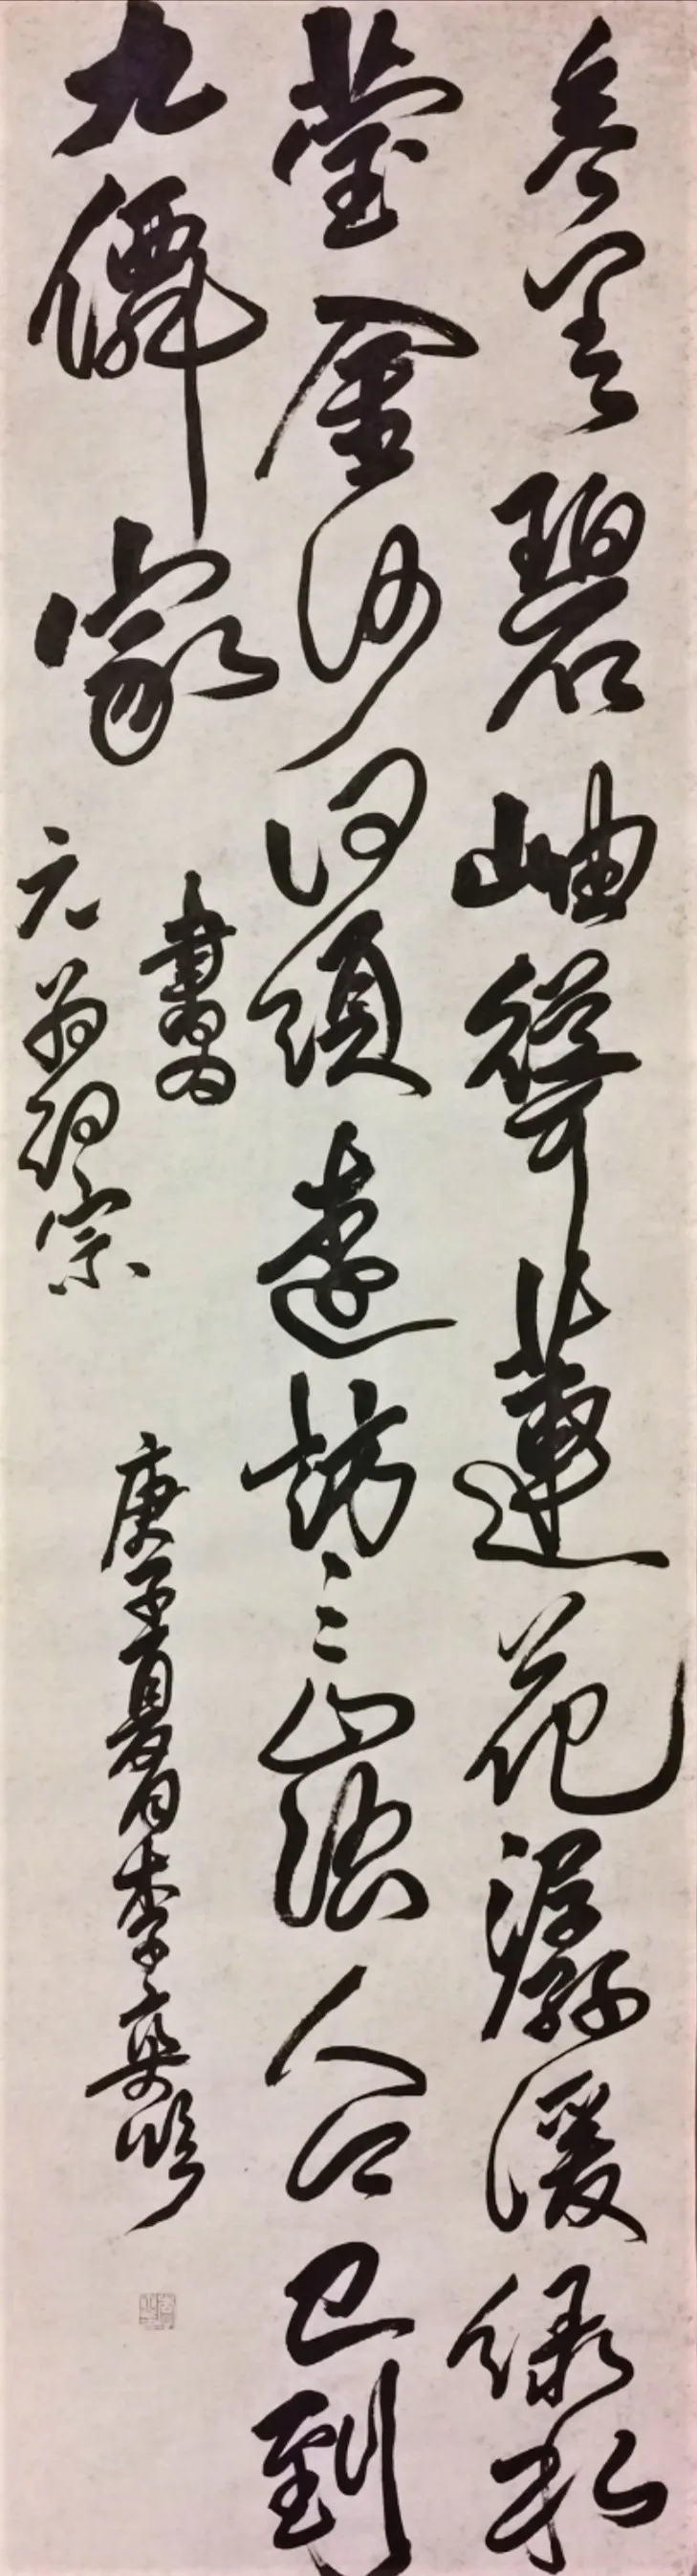 參差碧岫聳蓮花潺湲綠水
瑩金沙何須遠訪三山路人今已到
九僊家
書為
元翁詞宗
庚子夏日李